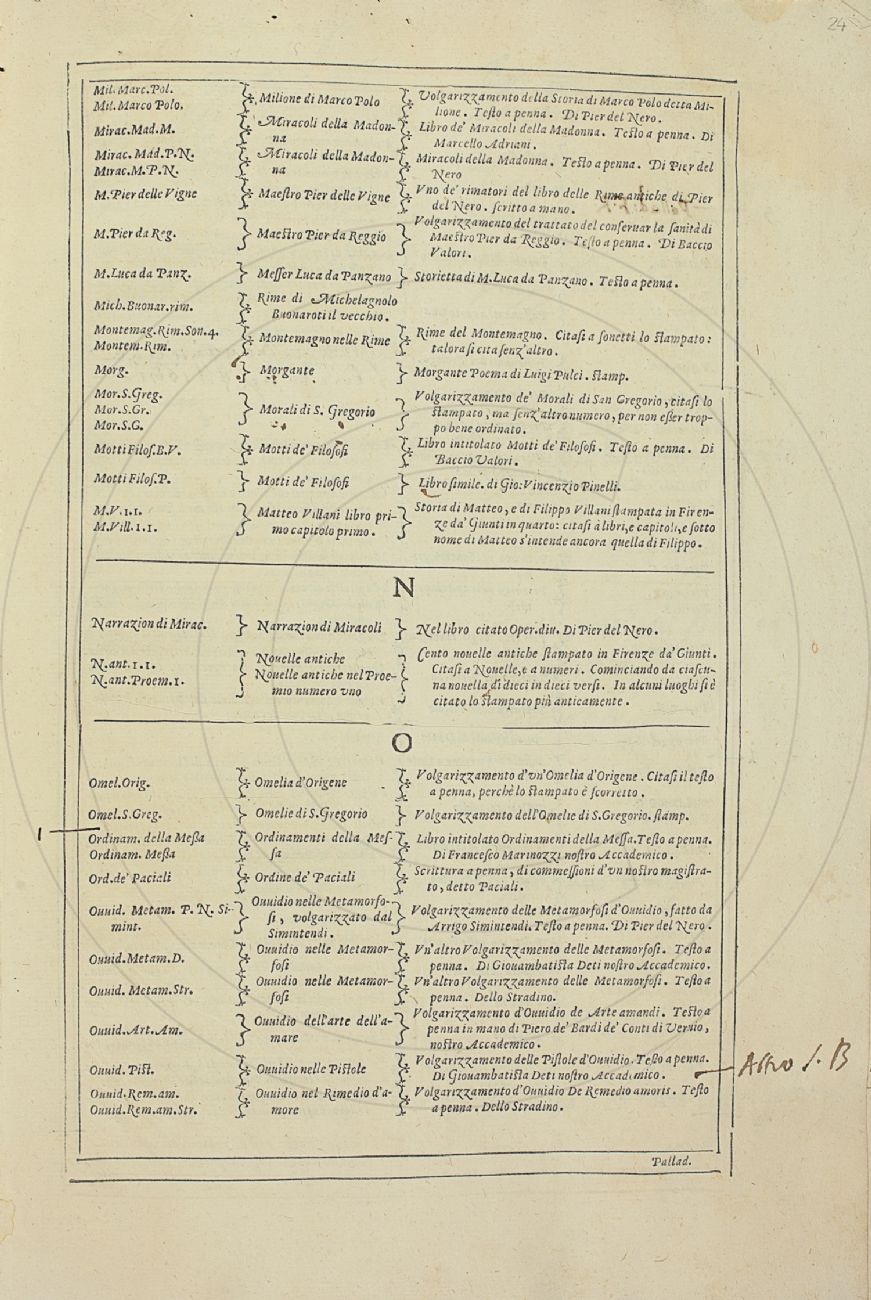 24
Mil. Marc. Pol.
Mil. Marco Polo.
Milione di Marco Polo
Volgarizzamento della Storia di Marco Polo detta Mi-
lione. Testo a penna. Di Pier del Nero.
Mirac. Mad. M.
Miracoli della Madon-
na
Libro de' Miracoli della Madonna. Testo a penna. Di
Marcello Adriani.
Mirac. Mad. P. N.
Mirac. M. P. N.
Miracoli della Madon-
na
Miracoli della Madonna. Testo a penna. Di Pier del
Nero
M. Pier delle Vigne
Maestro Pier delle Vigne
Vno de' rimatori del libro delle Rime antiche di Pier
del Nero. scritto a mano.
M. Pier da Reg.
Maestro Pier da Reggio
Volgarizzamento del trattato del conseruar la sanità di
Maestro Pier da Reggio. Testo a penna. Di Baccio
Valori.
M. Luca da Panz.
Messer Luca da Panzano
Storietta di M. Luca da Panzano. Testo a penna.
Mich. Buonar. rim.
Rime di Michelagnolo
Buonaroti il vecchio.
Montemag. Rim. Son. 4.
Montem. Rim.
Montemagno nelle Rime
Rime del Montemagno. Citasi a sonetti lo stampato:
talora si cita senz'altro.
Morg.
Morgante
Morgante Poema di Luigi Pulci. stamp.
Mor. S. Greg.
Mor. S. Gr.
Mor. S. G.
Morali di S. Gregorio
Volgarizzamento de' Morali di San Gregorio, citasi lo
stampato, ma senz'altro numero, per non esser trop-
po bene ordinato.
Motti Filos. B. V.
Motti de' Filosofi
Libro intitolato Motti de' Filosofi. Testo a penna. Di
Baccio Valori.
Motti Filos. P.
Motti de' Filosofi
Libro simile. di Gio: Vincenzio Pinelli.
M. V. 1. 1.
M. Vill. 1. 1.
Matteo Villani libro pri-
mo capitolo primo.
Storia di Matteo, e di Filippo Villani stampata in Firen-
ze da' Giunti in quarto: citasi à libri, e capitoli, e sotto
nome di Matteo s'intende ancora quella di Filippo.
N
Narrazion di Mirac.
Narrazion di Miracoli
Nel libro citato Oper. diu. Di Pier del Nero.
N. ant. 1. 1.
N. ant. Proem. 1.
Nouelle antiche
Nouelle antiche nel Proe-
mio numero vno
Cento nouelle antiche stampato in Firenze da' Giunti.
Citasi a Nouelle, e a numeri. Cominciando da ciascu-
na nouella di dieci in dieci versi. In alcuni luoghi si è
citato lo stampato più anticamente.
O
Omel. Orig.
Omelia d'Origene
Volgarizzamento d'vn'Omelia d'Origene. Citasi il testo
a penna, perchè lo stampato è scorretto.
Omel. S. Greg.
Omelie di S. Gregorio
Volgarizzamento dell'Omelie di S. Gregorio. stamp.
Ordinam. della Messa
Ordinam. Messa
Ordinamenti della Mes-
sa
Libro intitolato Ordinamenti della Messa. Testo a penna.
Di Francesco Marinozzi nostro Accademico.
Ord. de' Paciali
Ordine de' Paciali
Scrittura a penna, di commessioni d'vn nostro magistra-
to, detto Paciali.
Ouuid. Metam. P. N. Si-
mint.
Ouuidio nelle Metamorfo-
si, volgarizzato dal
Simintendi.
Volgarizzamento delle Metamorfosi d'Ouuidio, fatto da
Arrigo Simintendi. Testo a penna. Di Pier del Nero.
Ouuid. Metam. D.
Ouuidio nelle Metamor-
fosi
Vn'altro Volgarizzamento delle Metamorfosi. Testo a
penna. Di Giouambatista Deti nostro Accademico.
Ouuid. Metam. Str.
Ouuidio nelle Metamor-
fosi
Vn'altro Volgarizzamento delle Metamorfosi. Testo a
penna. Dello Stradino.
Ouuid. Art. Am.
Ouuidio dell'arte dell'a-
mare
Volgarizzamento d'Ouuidio de Arte amandi. Testo a
penna in mano di Piero de' Bardi de' Conti di Vernio,
nostro Accademico.
Ouuid. Pist.
Ouuidio nelle Pistole
Volgarizzamento delle Pistole d'Ouuidio. Testo a penna.
Di Giouambatista Deti nostro Accademico.
Ouuid. Rem. am.
Ouuid. Rem. am. Str.
Ouuidio nel Rimedio d'a-
more
Volgarizzamento d'Ouuidio De Remedio amoris. Testo
a penna. Dello Stradino.
Pallad.